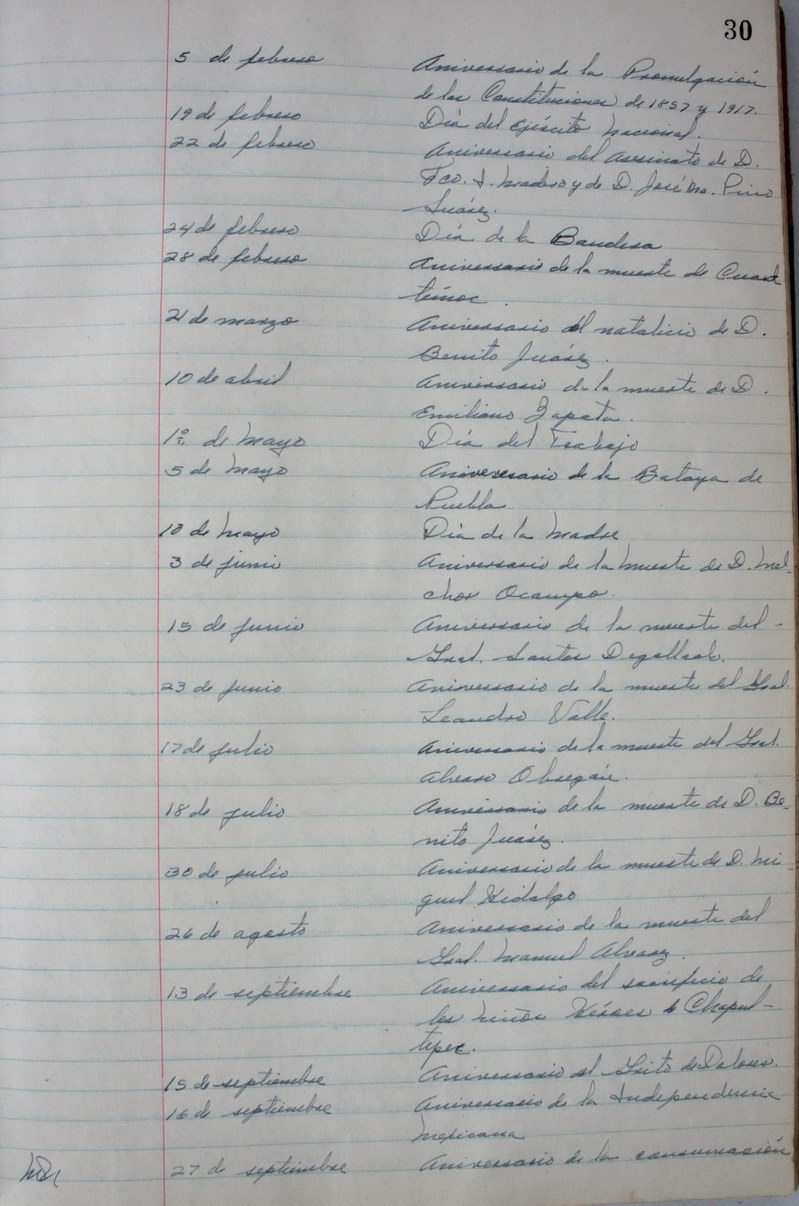 30
5 de febrero Aniversario de la Promulgación
de las Constituciones de 1857 y 1917.
19 de febrero Día del ejército nacional.
22 de febrero Aniversario del asesinato de D.
Fco. I. Madero y de D. José Ma. Pino
Suárez.
24 de febrero Día de la Bandera
28 de febrero Aniversario de la muerte de Cuauh
témoc.
21 de marzo Aniversario del natalicio de D.
Benito Juárez.
10 de abril Aniversario de la muerte de D.
Emiliano Zapata.
1º. de Mayo Día del Trabajo
5 de Mayo Aniversario de la Bataya de
Puebla
10 de Mayo Día de la Madre
3 de junio Aniversario de la Muerte de D. Mel-
chor Ocampo.
15 de junio Aniversario de la muerte del -
Gral. Santos Degollado.
23 de junio Aniversario de la muerte del Gral.
Leandro Valle.
17 de julio Aniversario de la muerte del Gral.
Alvaro Obregón.
18 de julio Aniversario de la muerte de D. Be-
nito Juárez.
30 de julio Aniversario de la muerte de D. Mi-
guel Hidalgo
26 de agosto Aniversario de la muerte del
Gral. Manuel Alvarez.
13 de septiembre Aniversario del sacrificio de
los Niños Héroes de Chapul-
tepec.
15 de septiembre Aniversario del Grito de Dolores.
16 de septiembre Aniversario de la Independencia
Mexicana
27 de septiembre Aniversario de la consumación